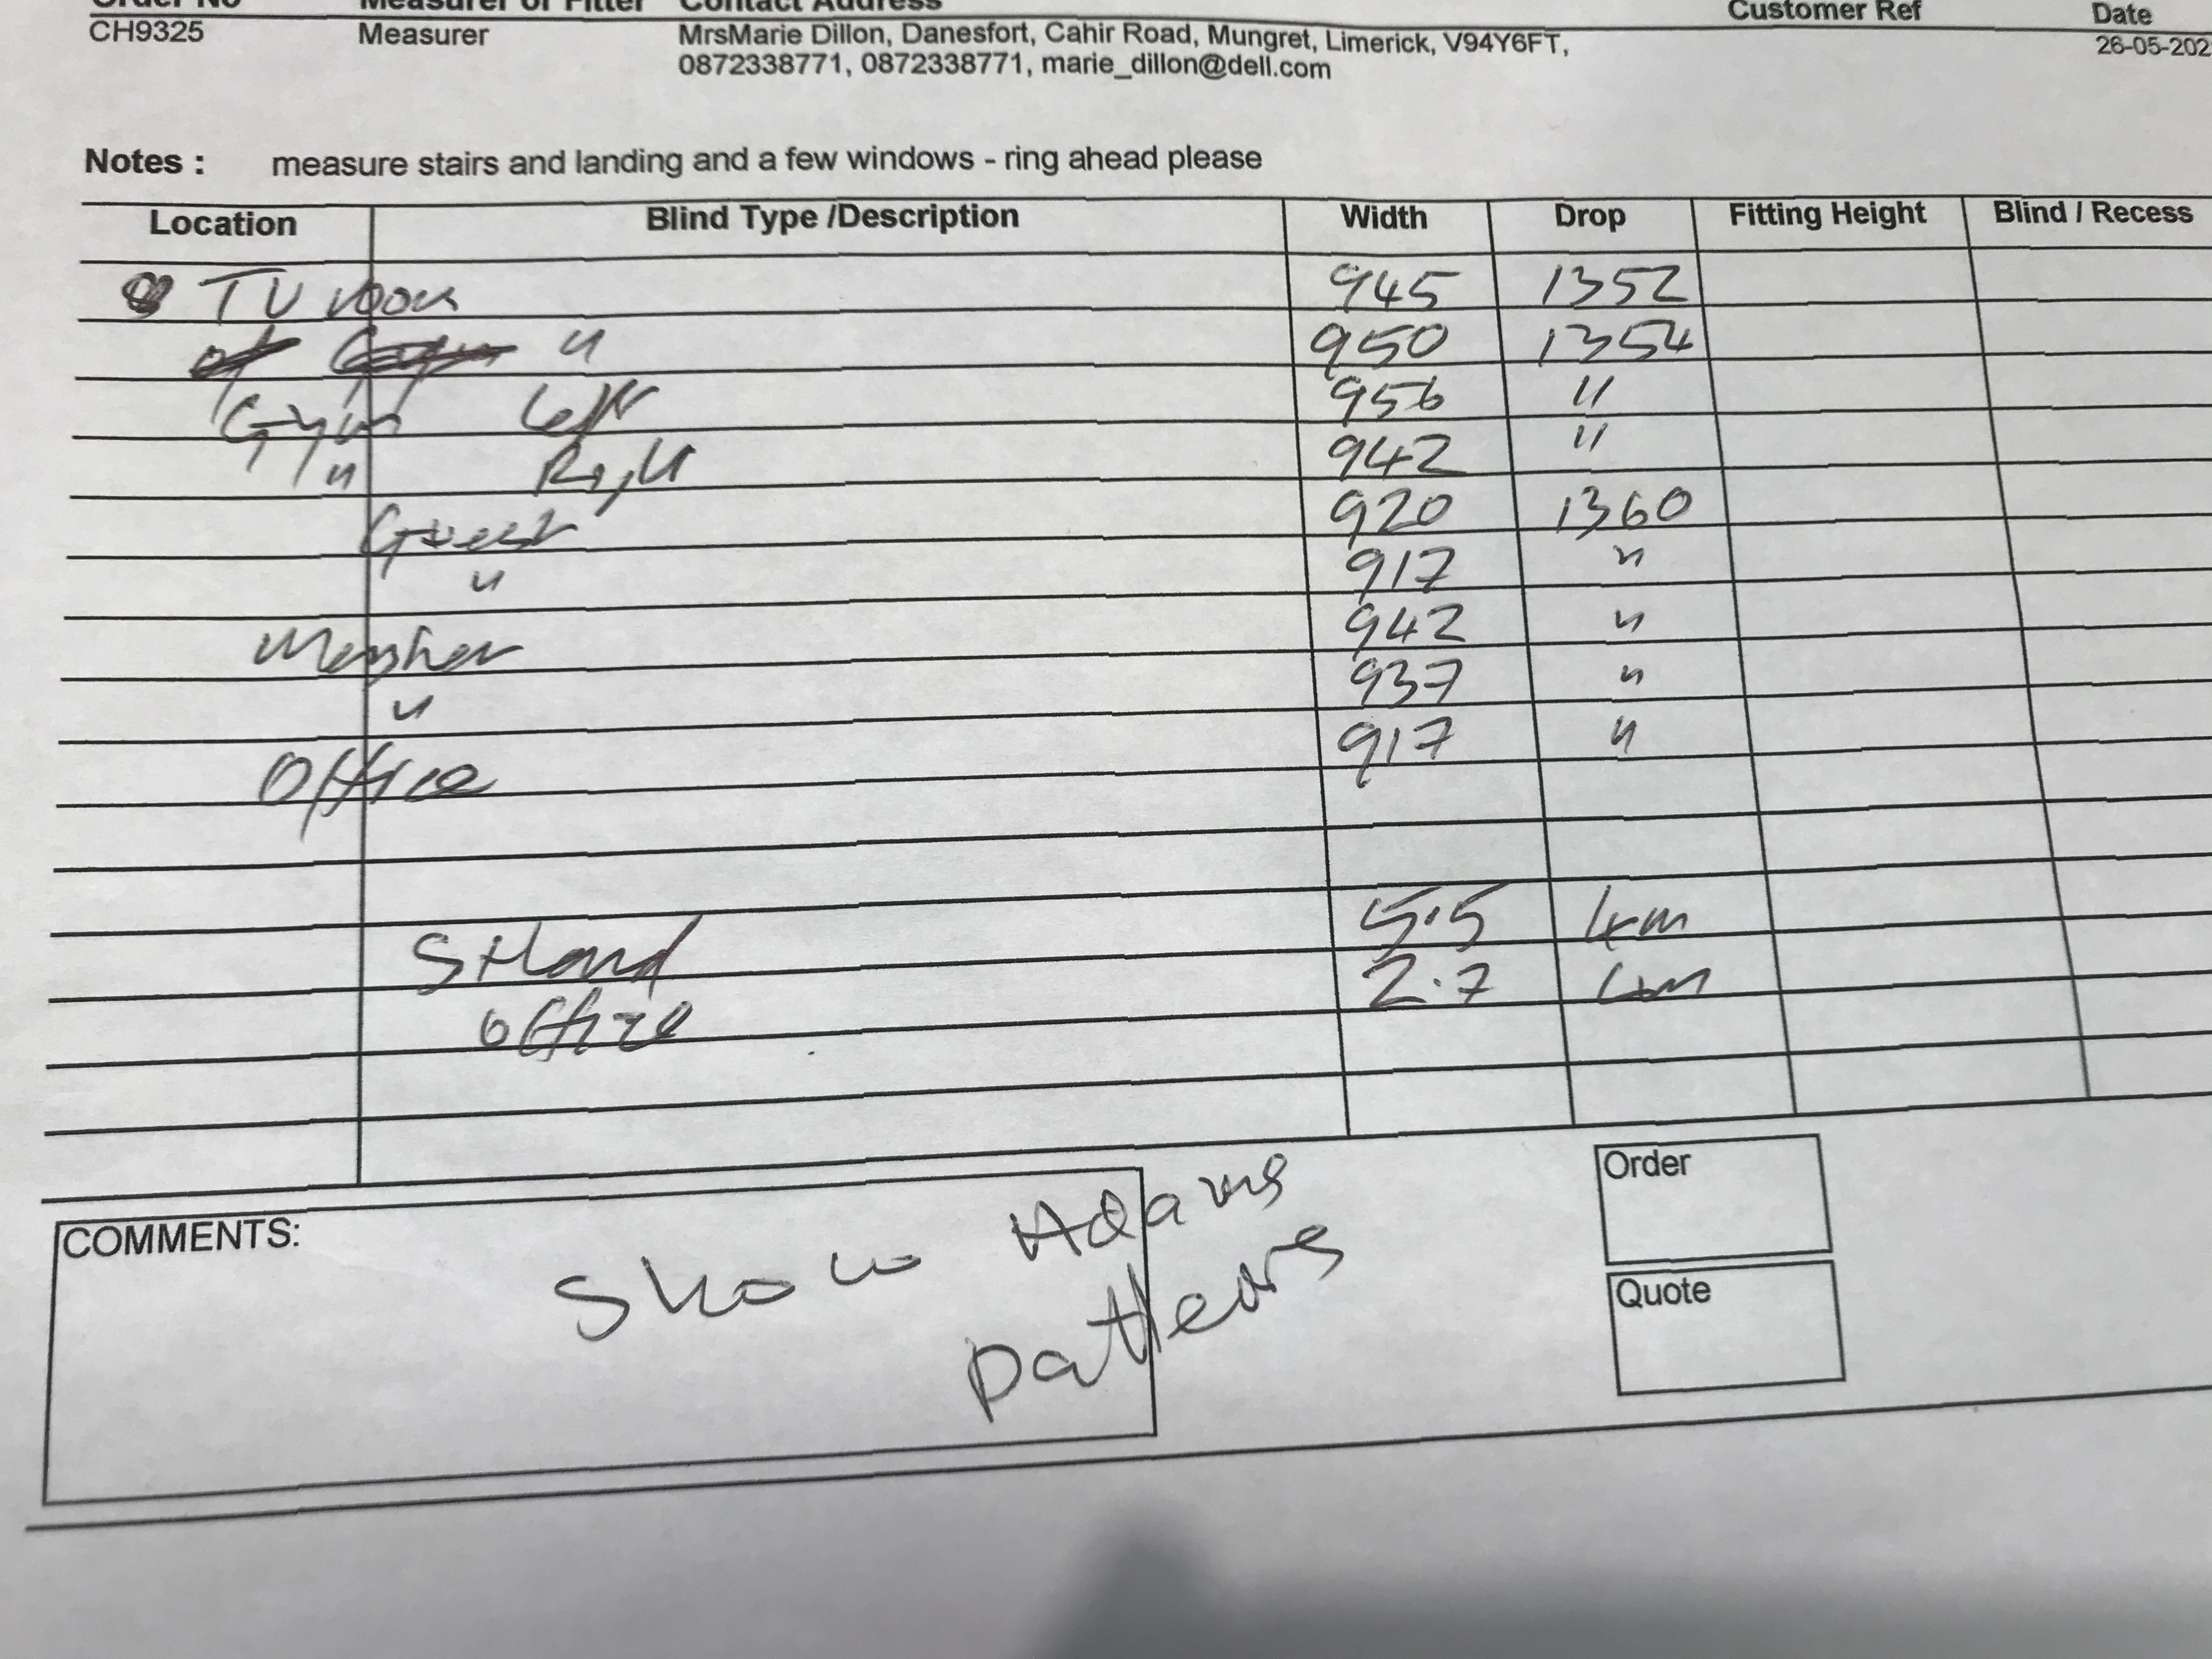 Order No Measurer or Fitter Contact Address Customer Ref Date
CH9325 Measurer MrsMarie Dillon, Danesfort, Cahir Road, Mungret, Limerick, V94Y6FT, 26-05-202
0872338771, 0872338771, marie_dillon@dell.com
Notes : measure stairs and landing and a few windows - ring ahead please
Location Blind Type /Description Width Drop Fitting Height Blind / Recess
TV room 945 1352
" 950 1354
Gym Left 956 "
" Right 942 "
Guest 920 1360
" 917 "
Master 942 "
" 937 "
Office 917 "
St Land 5.5 4m
office 2.7 4m
COMMENTS:
Show Adams
patterns
Order
Quote